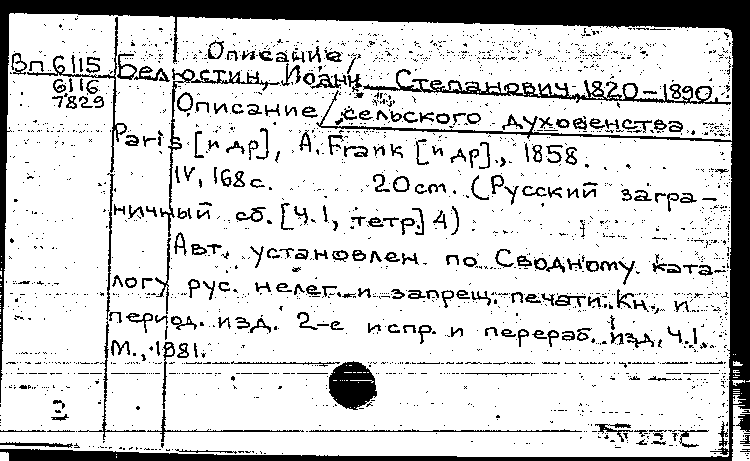 Описание /
Вп 6115 Белюстин, Иоанн Степанович, 1820-1890.
6116
7829 Описание / сельского духовенства.
Paris [и др], A. Frank [и др]., 1858.
IV, 168 с. 20 cm. (Русский загра-
ничный сб. [Ч.1, тетр.] 4)
Авт. установлен по Сводному ката-
логу рус. нелег. и запрещ. печати. Кн. и
период. изд. 2-е испр. и перераб. изд. Ч.1.
М., 1981.